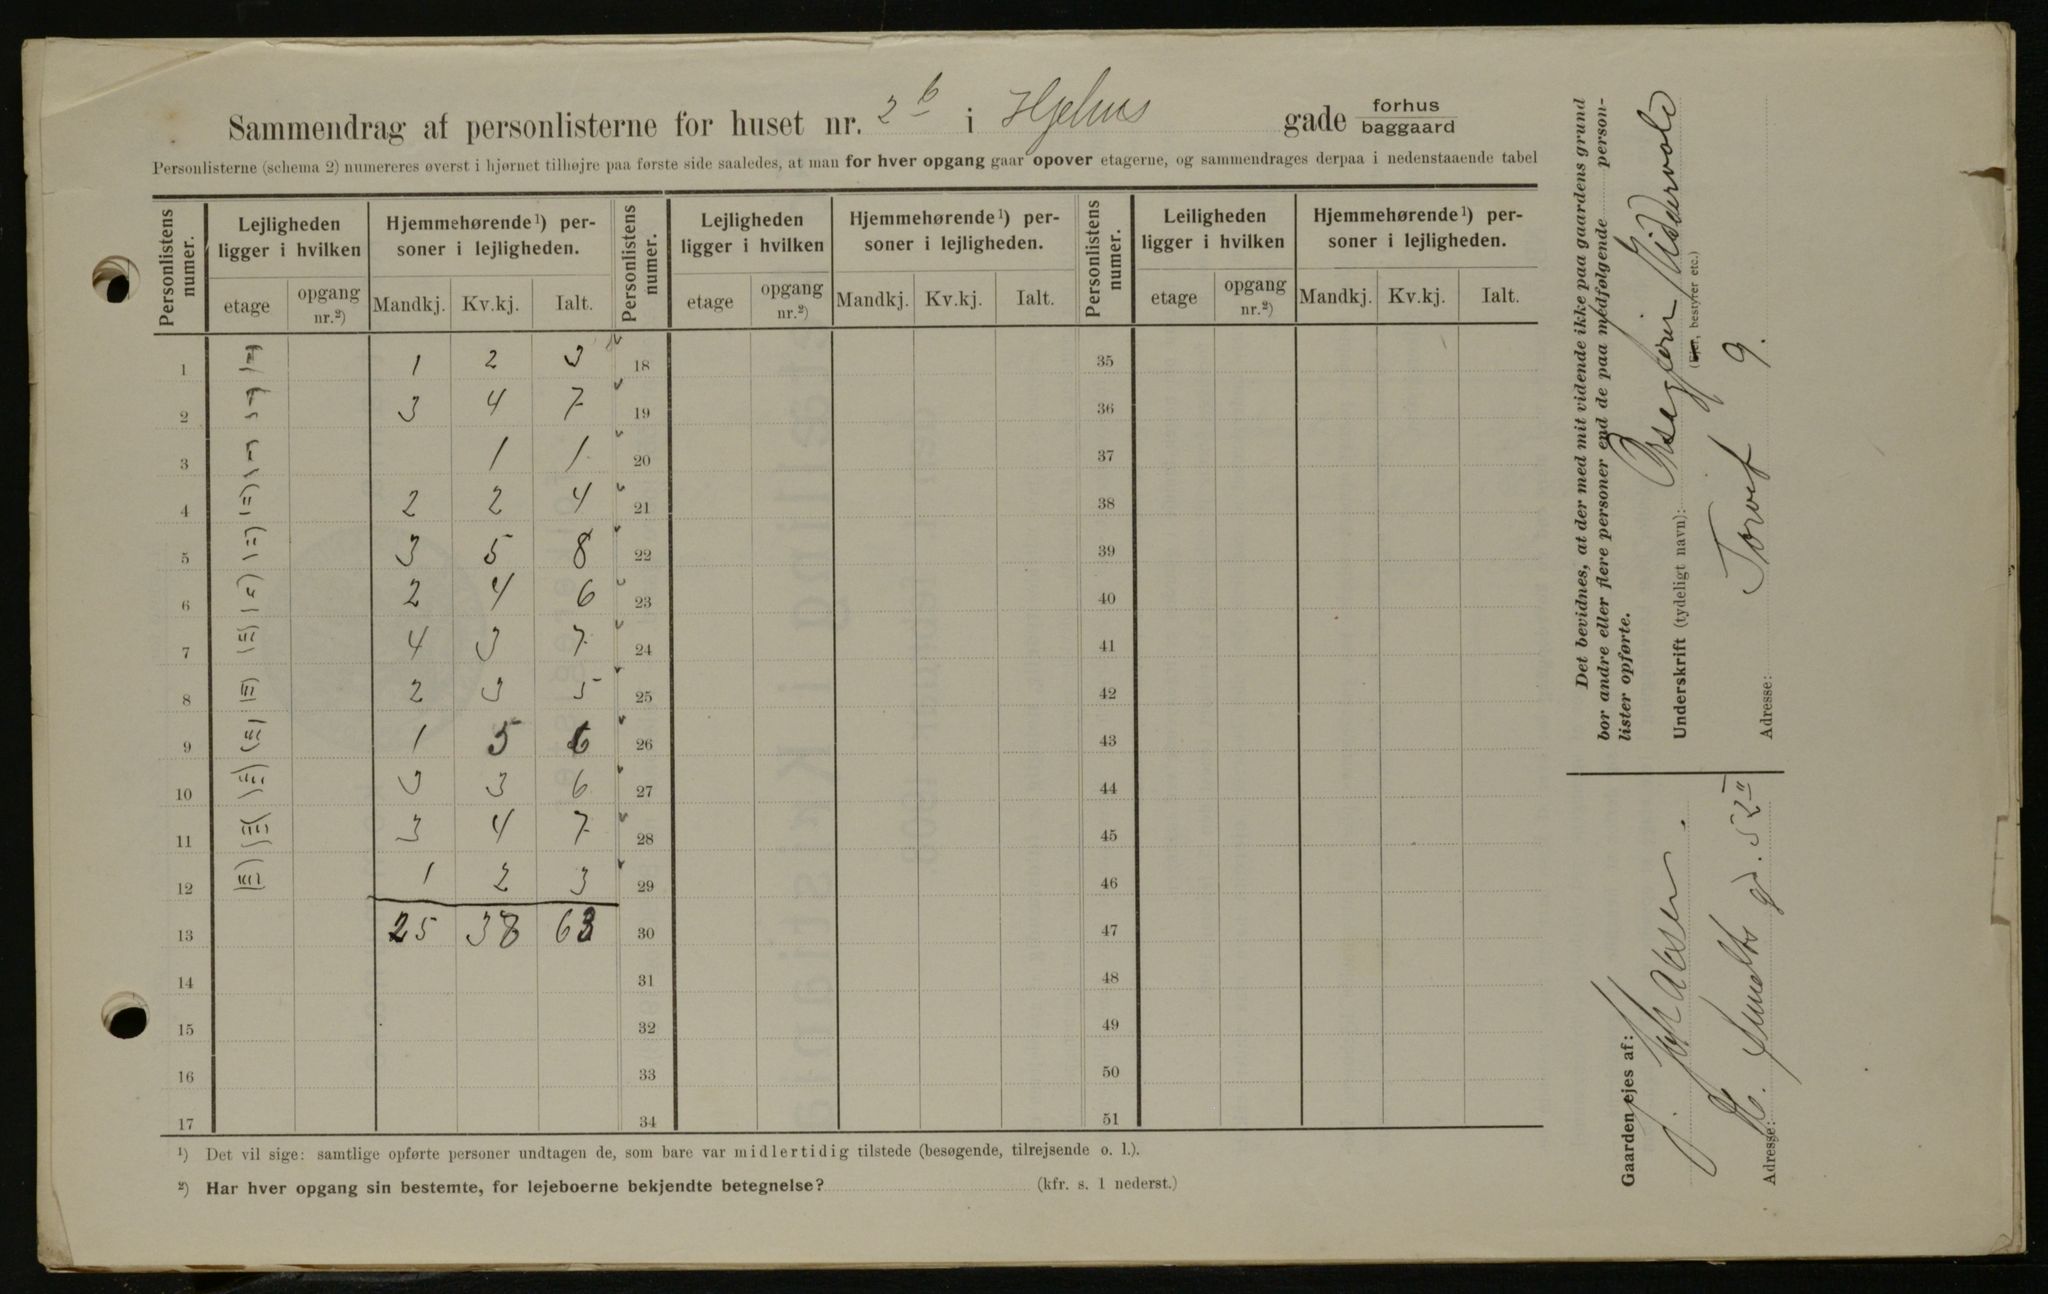 Sammendrag af personlisterne for huset nr. 2 b i Hjelms gade forhus baggaard
Personlisterne (schema 2) numereres øverst i hjørnet tilhøjre paa første side saaledes, at man for hver opgang gaar opover etagerne, og sammendrages derpaa i nedenstaaende tabel
Personlistens numer. Lejligheden ligger i hvilken Hjemmehørende¹) personer i lejligheden. Personlistens numer. Lejligheden ligger i hvilken Hjemmehørende¹) personer i lejligheden. Personlistens numer. Leiligheden ligger i hvilken Hjemmehørende¹) personer i lejligheden.
etage opgang nr.²) Mandkj. Kv.kj. Ialt. etage opgang nr.²) Mandkj. Kv.kj. Ialt. etage opgang nr.²) Mandkj. Kv.kj. Ialt.
1 1 2 3 18 35
2 3 4 7 19 36
3 1 1 20 37
4 2 2 4 21 38
5 3 5 8 22 39
6 2 4 6 23 40
7 4 3 7 24 41
8 2 3 5 25 42
9 1 5 6 26 43
10 3 3 6 27 44
11 3 4 7 28 45
12 1 2 3 29 46
13 25 38 63 30 47
14 31 48
15 32 49
16 33 50
17 34 51
¹) Det vil sige: samtlige opførte personer undtagen de, som bare var midlertidig tilstede (besøgende, tilrejsende o. l.).
²) Har hver opgang sin bestemte, for lejeboerne bekjendte betegnelse? (kfr. s. 1 nederst.)
Det bevidnes, at der med mit vidende ikke paa gaardens grund
bor andre eller flere personer end de paa medfølgende person-
lister opførte.
Underskrift (tydeligt navn):
(Ejer, bestyrer etc.)
Adresse: Torvet 9.
Gaarden ejes af:
J.
Adresse: gd. 52 II